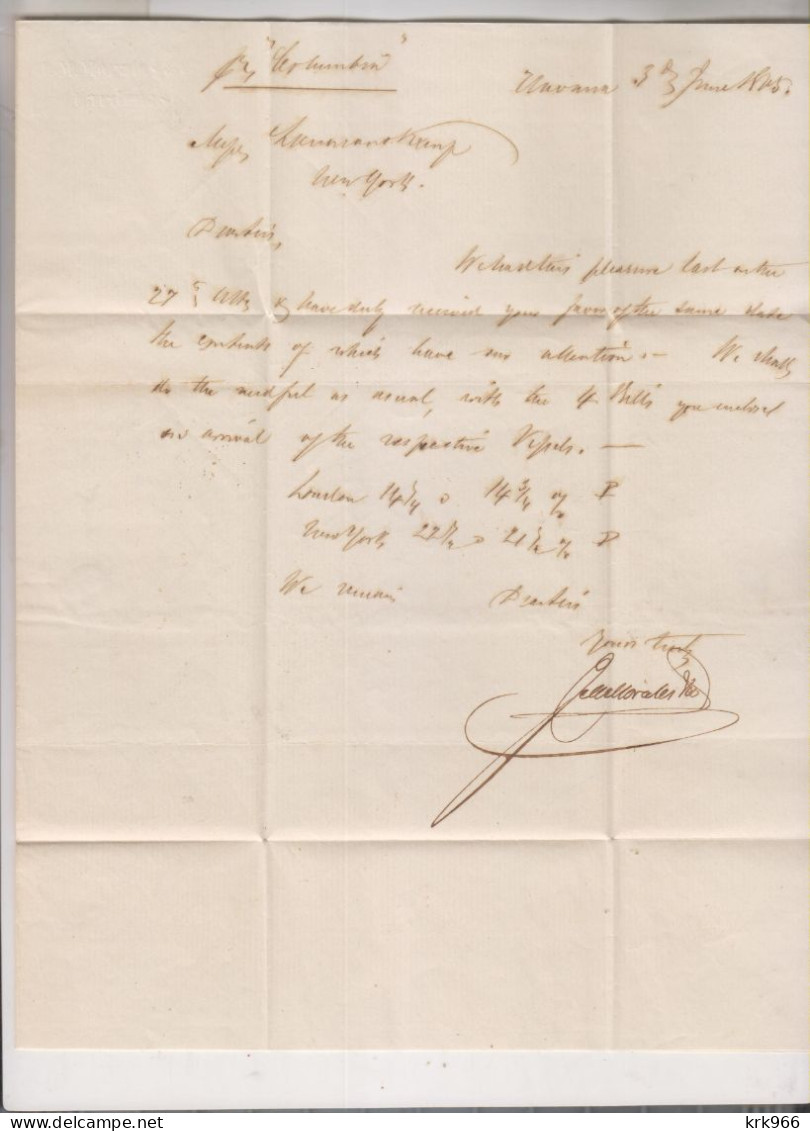 pr "Columbia"
Havana 3d June 1865.
Messrs Lanman & Kemp
New York.
Dear Sirs,
We had this pleasure last on the
27th Ulto & have duly received your favor of the same date
the contents of which have our attention. — We shall
do the needful as usual, with the 4 Bills you enclosed
on arrival of the respective Vessels. —
London 14 1/4 a 14 3/4 % P
New York 22 1/2 a 21 1/2 % D
We remain Dear Sirs
Yours truly
Morales &Co
krk966